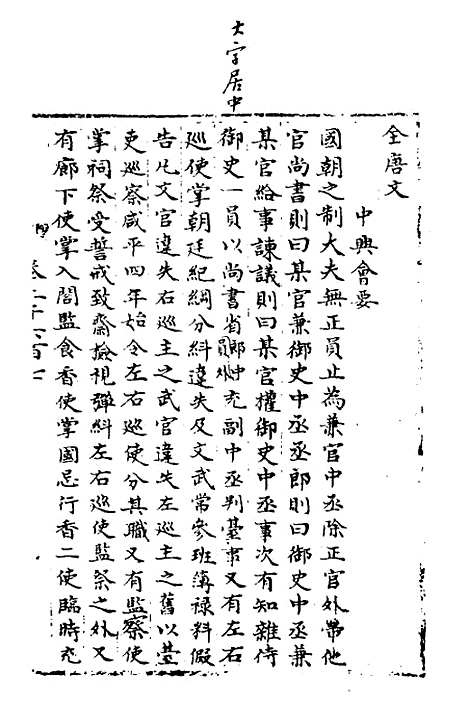 大字居中
全唐文
中興會要
國朝之制大夫無正員止為兼官中丞除正官外帶他
官尚書則曰某官兼御史中丞丞郎則曰御史中丞兼
某官給事諫議則曰某官權御史中丞事次有知雜侍
御史一員以尚書省郎中員外充副中丞判臺事又有左右
巡使掌朝廷紀綱分糾違失及文武常參班簿祿料假
告凡文官違失右巡主之武官違失左巡主之舊以臺
吏巡察咸平四年始令左右巡使分其職又有監察使
掌祠祭受誓戒致齋撿視彈糾左右巡使監祭之外又
有廊下使掌入閤監食香使掌國忌行香二使臨時充